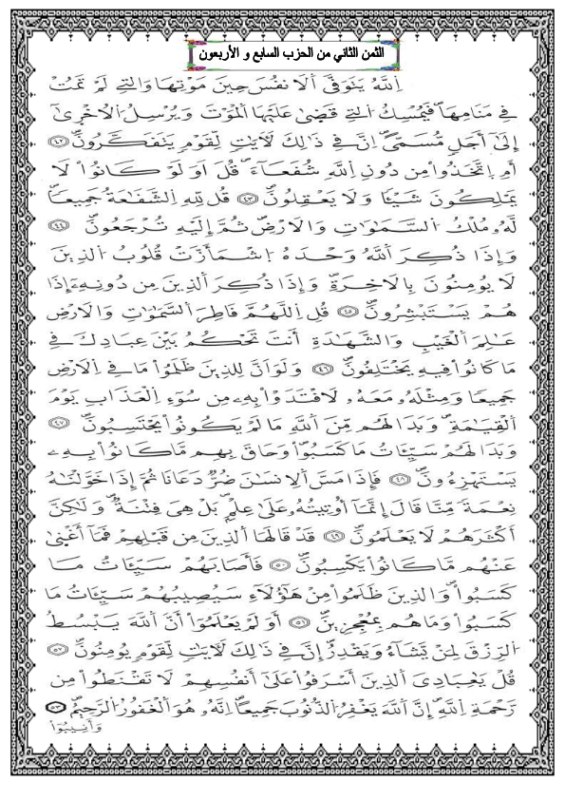 الثمن الثاني من الحزب السابع و الأربعون
اِ۬للَّهُ يَتَوَفَّى اَ۬لَانفُسَ حِينَ مَوْتِهَا وَالتِے لَمْ تَمُتْ
فِے مَنَامِهَا فَيُمْسِكُ اُ۬لتِے قَض۪ىٰ عَلَيْهَا اَ۬لْمَوْتَ وَيُرْسِلُ اُ۬لُاخْر۪ىٰٓ
إِلَىٰٓ أَجَلٖ مُّسَمّىًۖ اِنَّ فِے ذَٰلِكَ لَأٓيَٰتٖ لِّقَوْمٖ يَتَفَكَّرُونَۖ ٤٢
أَمِ اِ۪تَّخَذُواْ مِن دُونِ اِ۬للَّهِ شُفَعَآءَۖ قُلَ اَوَلَوْ كَانُواْ لَا
يَمْلِكُونَ شَيْـٔاٗ وَلَا يَعْقِلُونَۖ ٤٣ قُل لِّلهِ اِ۬لشَّفَٰعَةُ جَمِيعاٗۖ
لَّهُۥ مُلْكُ اُ۬لسَّمَٰوَٰتِ وَالَارْضِ ثُمَّ إِلَيْهِ تُرْجَعُونَۖ ٤٤
وَإِذَا ذُكِرَ اَ۬للَّهُ وَحْدَهُ اُ۪شْمَأَزَّتْ قُلُوبُ اُ۬لذِينَ
لَا يُومِنُونَ بِالَاخِرَةِۖ وَإِذَا ذُكِرَ اَ۬لذِينَ مِن دُونِهِۦٓ إِذَا
هُمْ يَسْتَبْشِرُونَۖ ٤٥ قُلِ اِ۬للَّهُمَّ فَاطِرَ اَ۬لسَّمَٰوَٰتِ وَالَارْضِ
عَٰلِمَ اَ۬لْغَيْبِ وَالشَّهَٰدَةِ أَنتَ تَحْكُمُ بَيْنَ عِبَادِكَ فِے
مَا كَانُواْ فِيهِ يَخْتَلِفُونَۖ ٤٦ وَلَوَ اَنَّ لِلذِينَ ظَلَمُواْ مَا فِے اِ۬لَارْضِ
جَمِيعاٗ وَمِثْلَهُۥ مَعَهُۥ لَافْتَدَوْاْ بِهِۦ مِن سُوٓءِ اِ۬لْعَذَابِ يَوْمَ
اَ۬لْقِيَٰمَةِۖ وَبَدَا لَهُم مِّنَ اَ۬للَّهِ مَا لَمْ يَكُونُواْ يَحْتَسِبُونَۖ ٤٧
وَبَدَا لَهُمْ سَيِّـَٔاتُ مَا كَسَبُواْ وَحَاقَ بِهِم مَّا كَانُواْ بِهِۦ
يَسْتَهْزِءُونَۖ ٤٨ فَإِذَا مَسَّ اَ۬لِانسَٰنَ ضُرّٞ دَعَانَا ثُمَّ إِذَا خَوَّلْنَٰهُ
نِعْمَةٗ مِّنَّا قَالَ إِنَّمَآ أُوتِيتُهُۥ عَلَىٰ عِلْمِۢۖ بَلْ هِيَ فِتْنَةٞۖ وَلَٰكِنَّ
أَكْثَرَهُمْ لَا يَعْلَمُونَۖ ٤٩ قَدْ قَالَهَا اَ۬لذِينَ مِن قَبْلِهِمْ فَمَآ أَغْنَىٰ
عَنْهُم مَّا كَانُواْ يَكْسِبُونَۖ ٥٠ فَأَصَابَهُمْ سَيِّـَٔاتُ مَا
كَسَبُواْۖ وَالذِينَ ظَلَمُواْ مِنْ هَٰٓؤُلَآءِ سَيُصِيبُهُمْ سَيِّـَٔاتُ مَا
كَسَبُواْ وَمَا هُم بِمُعْجِزِينَۖ ٥١ أَوَلَمْ يَعْلَمُوٓاْ أَنَّ اَ۬للَّهَ يَبْسُطُ
اُ۬لرِّزْقَ لِمَنْ يَّشَآءُ وَيَقْدِرُۖ إِنَّ فِے ذَٰلِكَ لَأٓيَٰتٖ لِّقَوْمٖ يُومِنُونَۖ ٥٢
قُلْ يَٰعِبَادِيَ اَ۬لذِينَ أَسْرَفُواْ عَلَىٰٓ أَنفُسِهِمْ لَا تَقْنَطُواْ مِن
رَّحْمَةِ اِ۬للَّهِۖ إِنَّ اَ۬للَّهَ يَغْفِرُ اُ۬لذُّنُوبَ جَمِيعاًۖ اِنَّهُۥ هُوَ اَ۬لْغَفُورُ اُ۬لرَّحِيمُۖ ٥٣
وَأَنِيبُوٓاْ